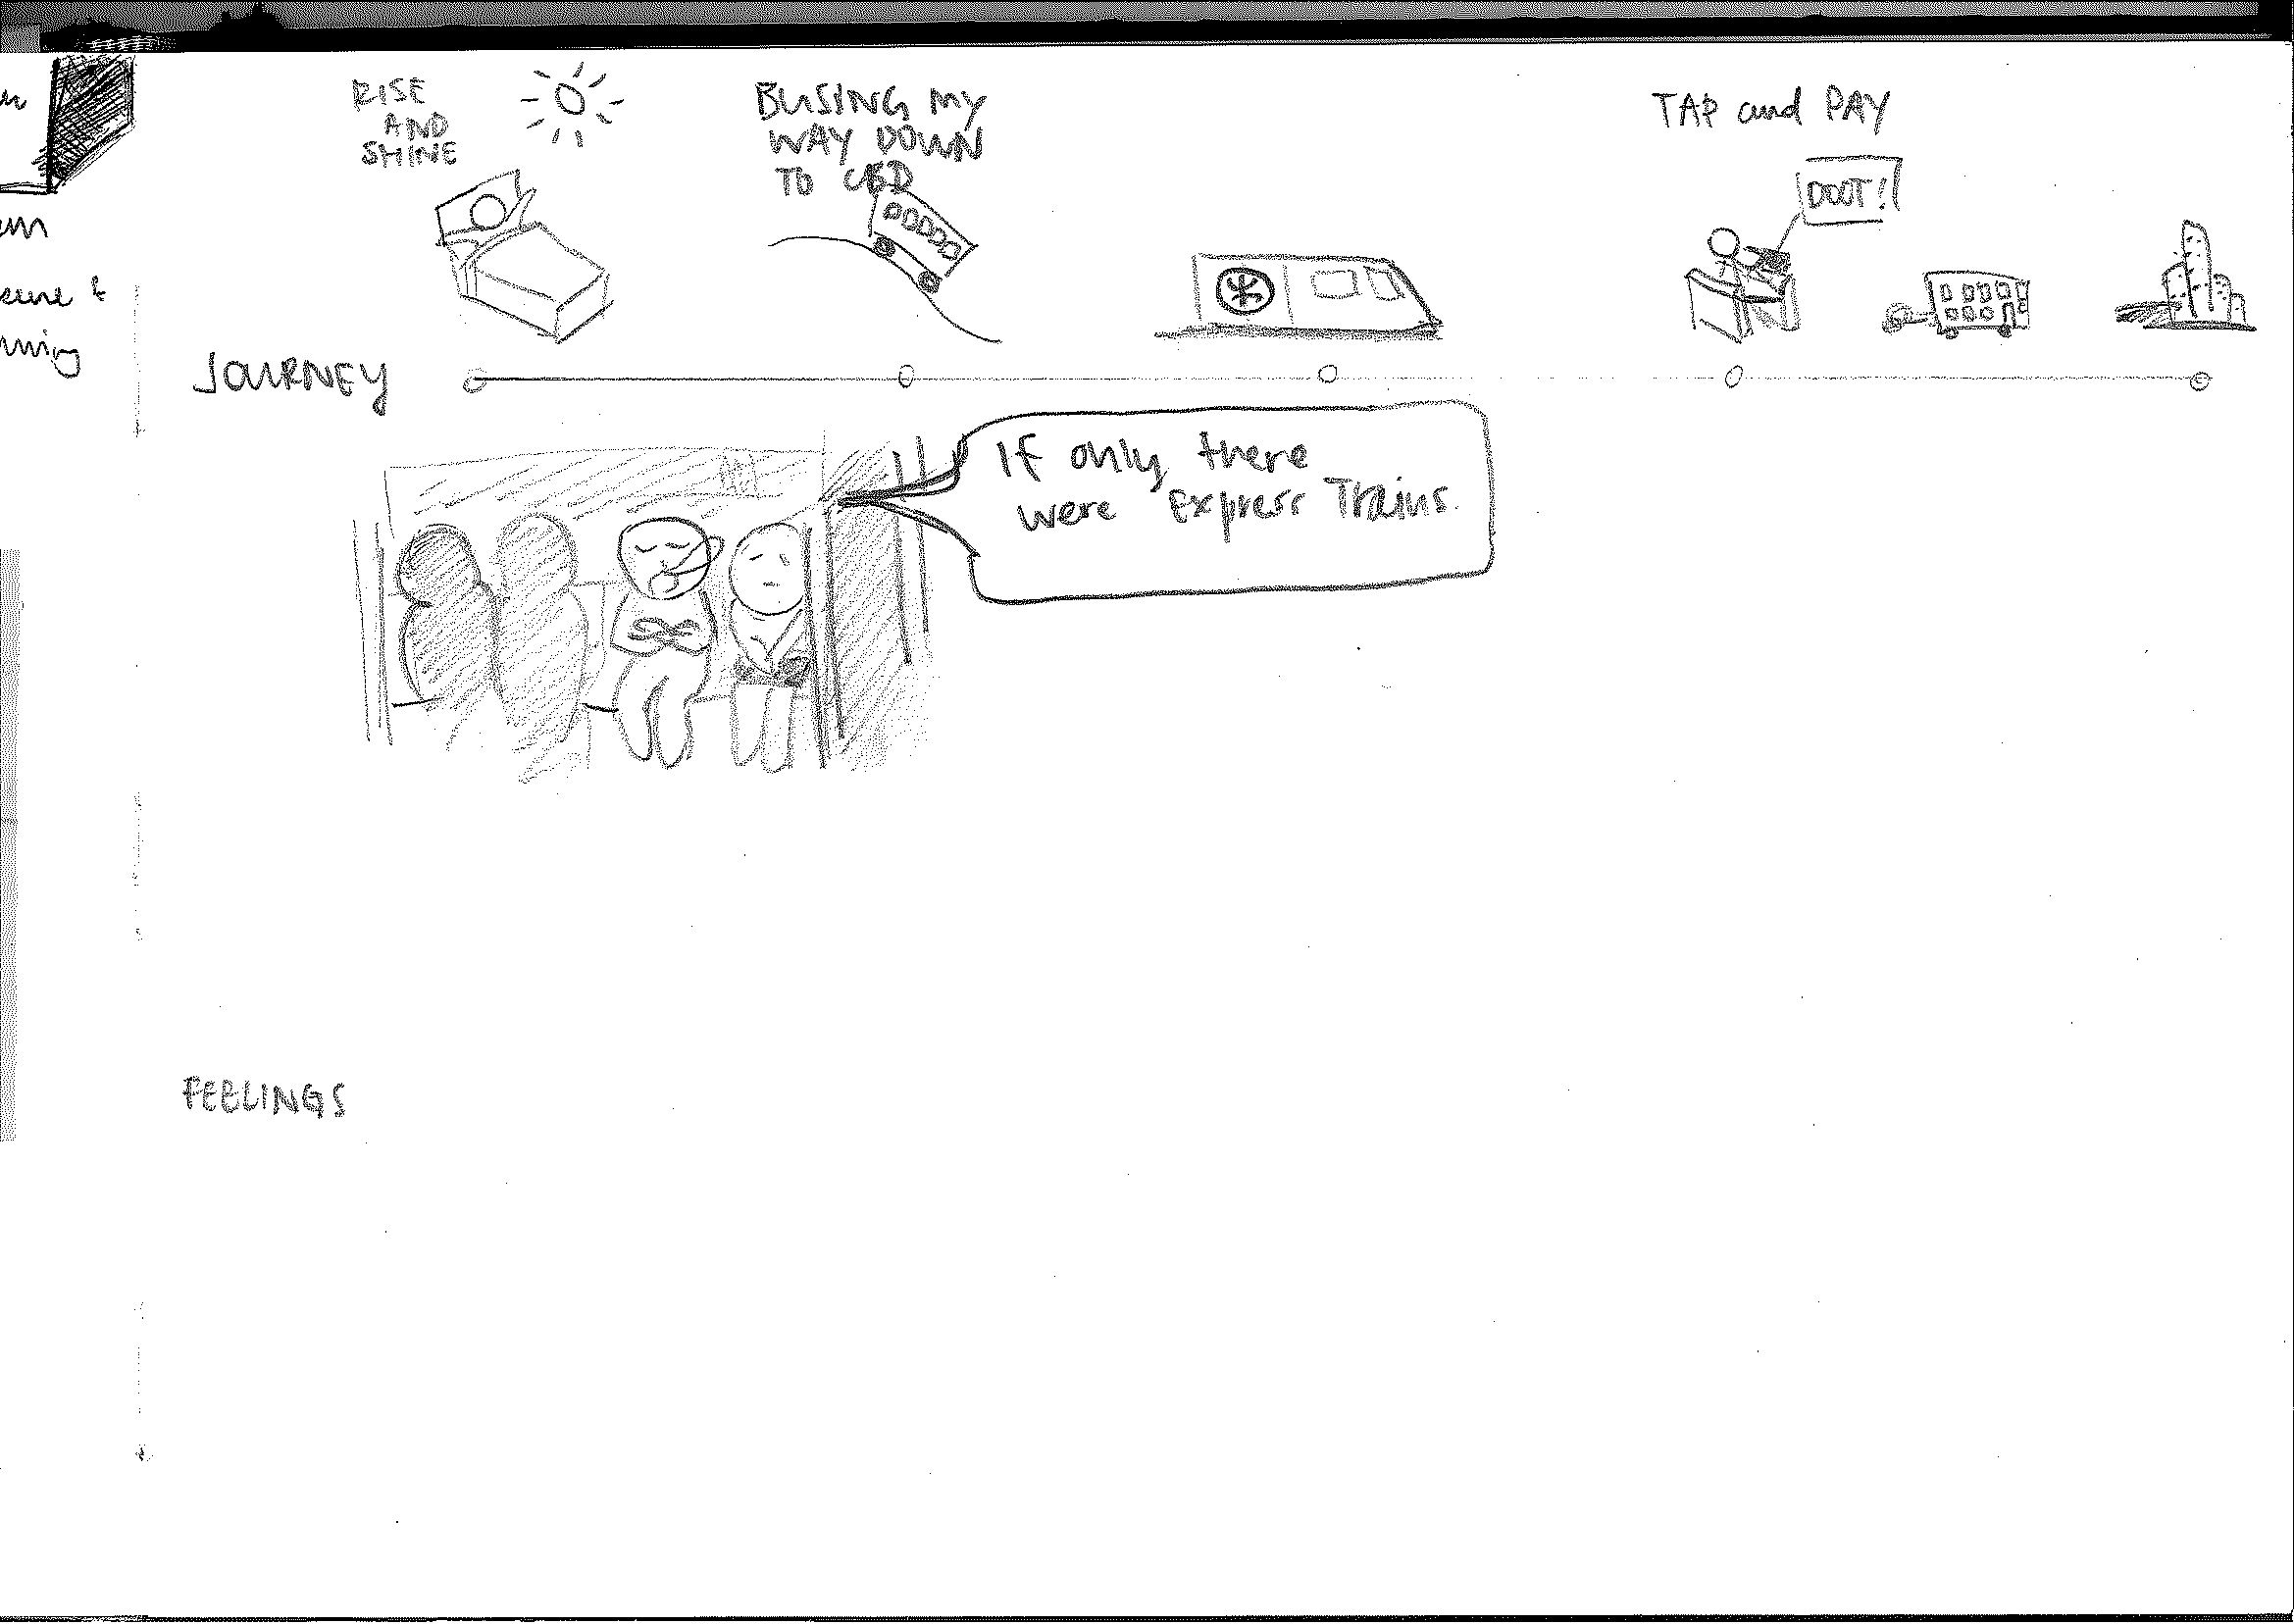 RISE
AND
SHINE
BUSING MY
WAY DOWN
TO CBD
TAP and PAY
DOOT!
JOURNEY
If only there
were Express Trains.
FEELINGS